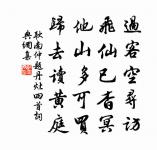 過客空尋訪
飛仙已杳冥
他山多可買
歸去讀黃庭
耿南仲題丹灶四首詞
典網集